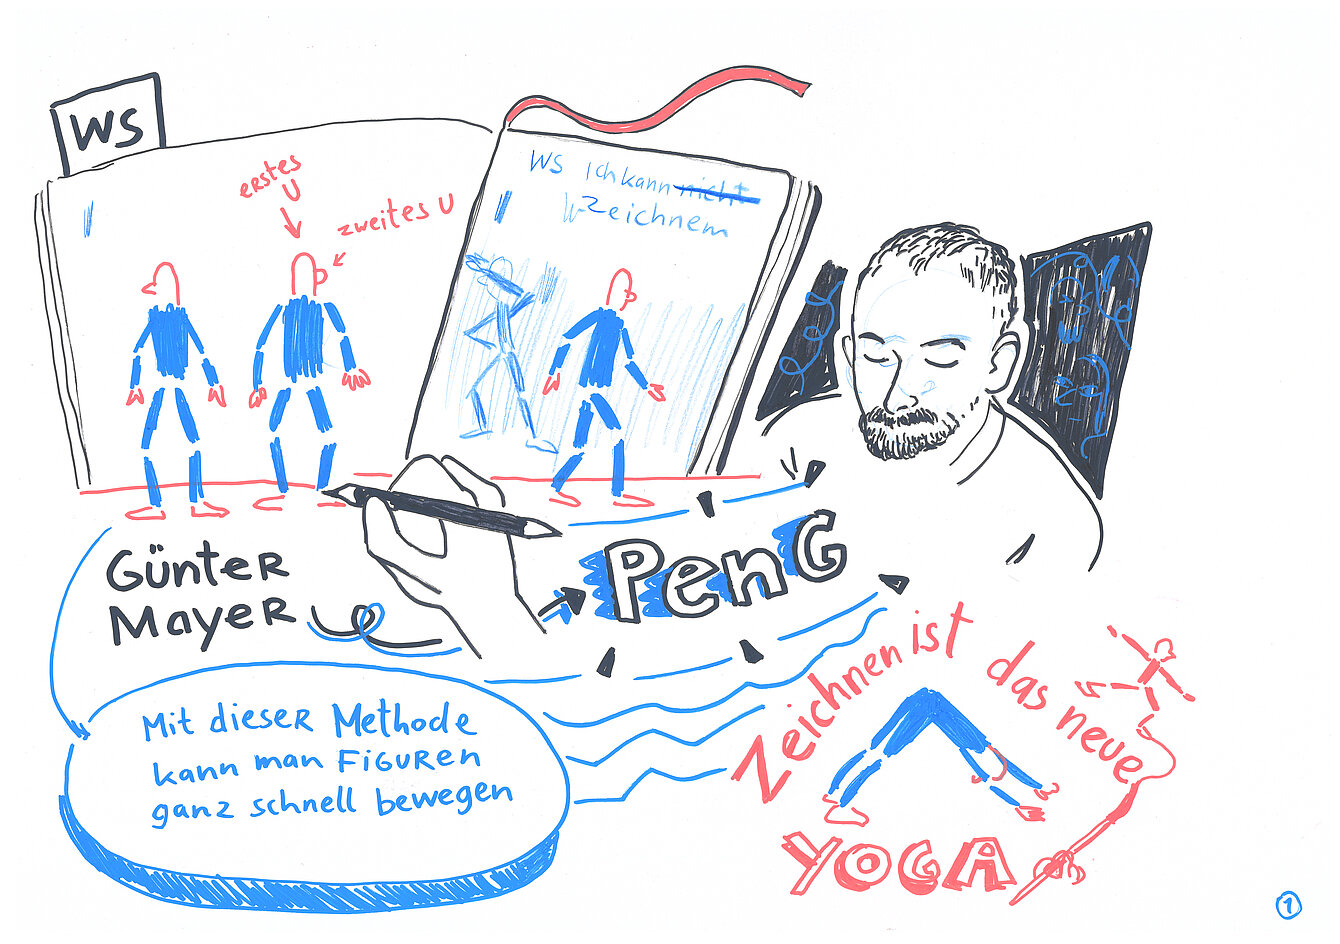 WS
erstes
U
zweites U
WS Ich kann nicht
Zeichnem
GÜnTER
MayER
PenG
Mit dieser Methode
kann man FiGUREn
ganz schnell bewegen
Zeichnen ist das neue
YOGA
1